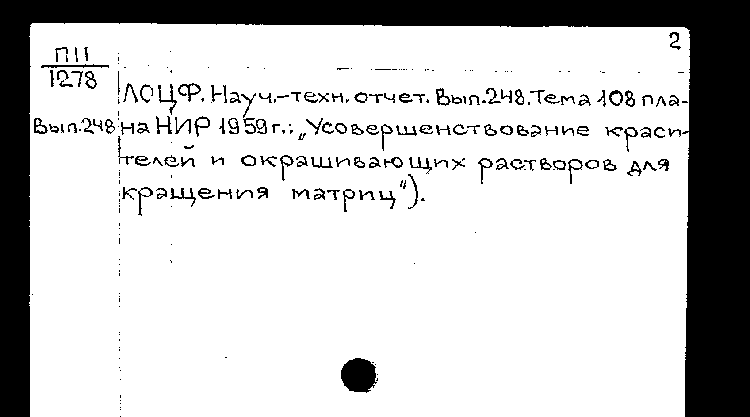 2
П11
1278
ЛОЦФ. Науч.-техн. отчет. Вып.248. Тема 108 пла-
Вып.248 на НИР 1959 г.: „Усовершенствование краси-
телей и окрашивающих растворов для
кращения матриц").